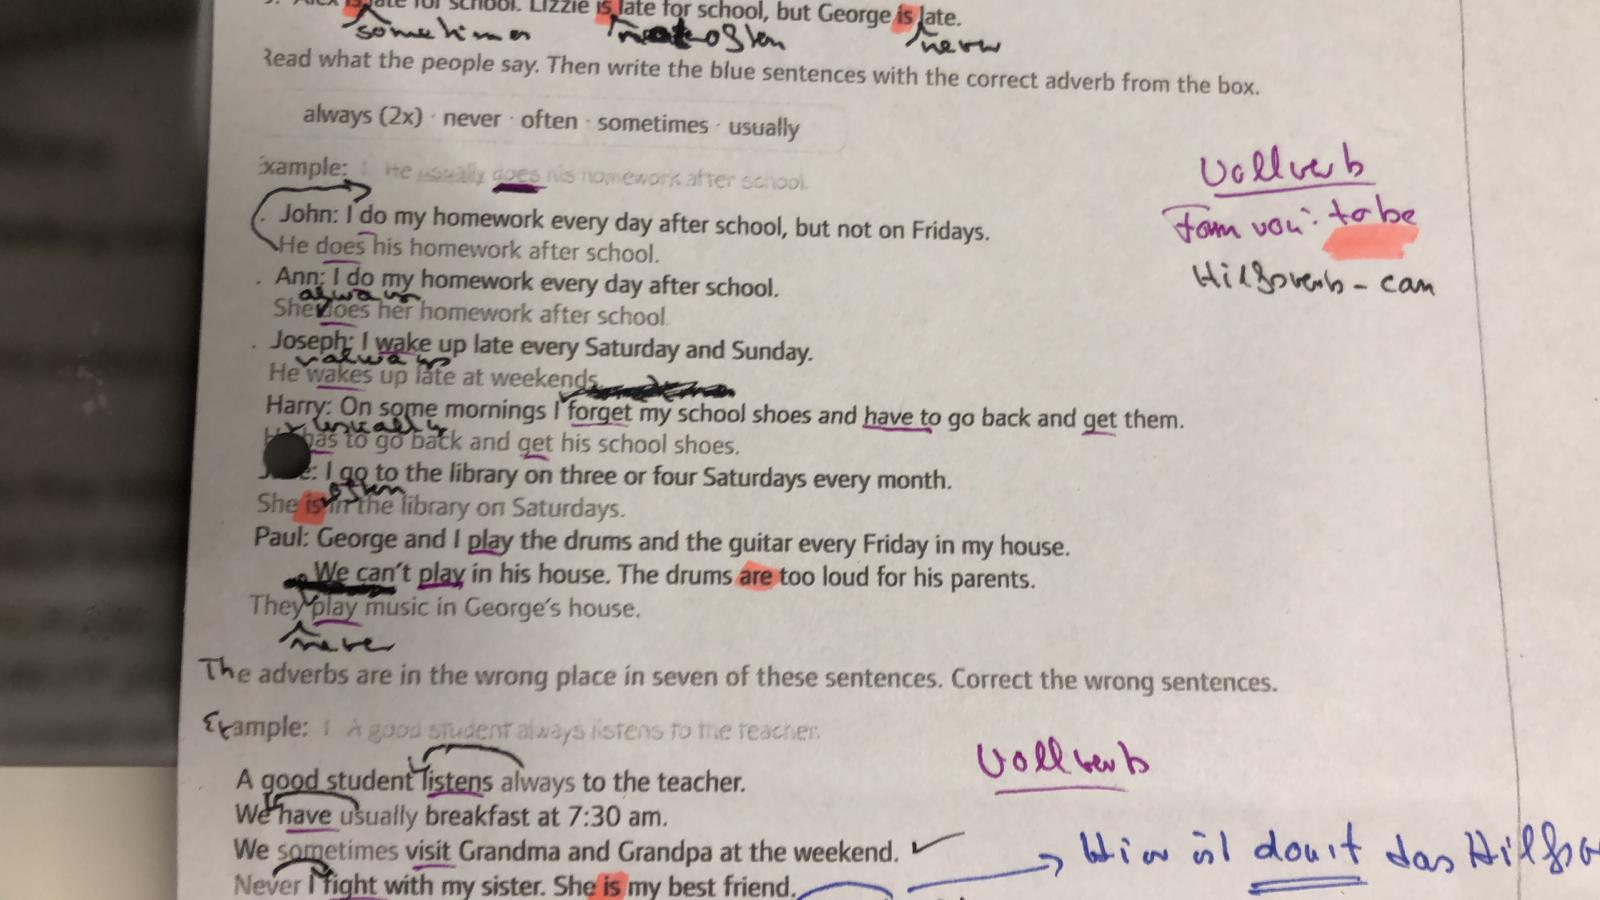 late for school. Lizzie is late for school, but George is late.
sometimes often never
Read what the people say. Then write the blue sentences with the correct adverb from the box.
always (2x) · never · often · sometimes · usually
Example: 1 He usually does his homework after school.
Vollverb
John: I do my homework every day after school, but not on Fridays.
Form von: to be
He does his homework after school.
Hilfsverb - can
Ann: I do my homework every day after school.
always
She does her homework after school.
Joseph: I wake up late every Saturday and Sunday.
always
He wakes up late at weekends.
Harry: On some mornings I forget my school shoes and have to go back and get them.
usually
has to go back and get his school shoes.
I go to the library on three or four Saturdays every month.
often
She is in the library on Saturdays.
Paul: George and I play the drums and the guitar every Friday in my house.
We can't play in his house. The drums are too loud for his parents.
They play music in George's house.
never
The adverbs are in the wrong place in seven of these sentences. Correct the wrong sentences.
Example: 1 A good student always listens to the teacher.
Vollverb
A good student listens always to the teacher.
We have usually breakfast at 7:30 am.
We sometimes visit Grandma and Grandpa at the weekend.
das
Never I fight with my sister. She is my best friend.